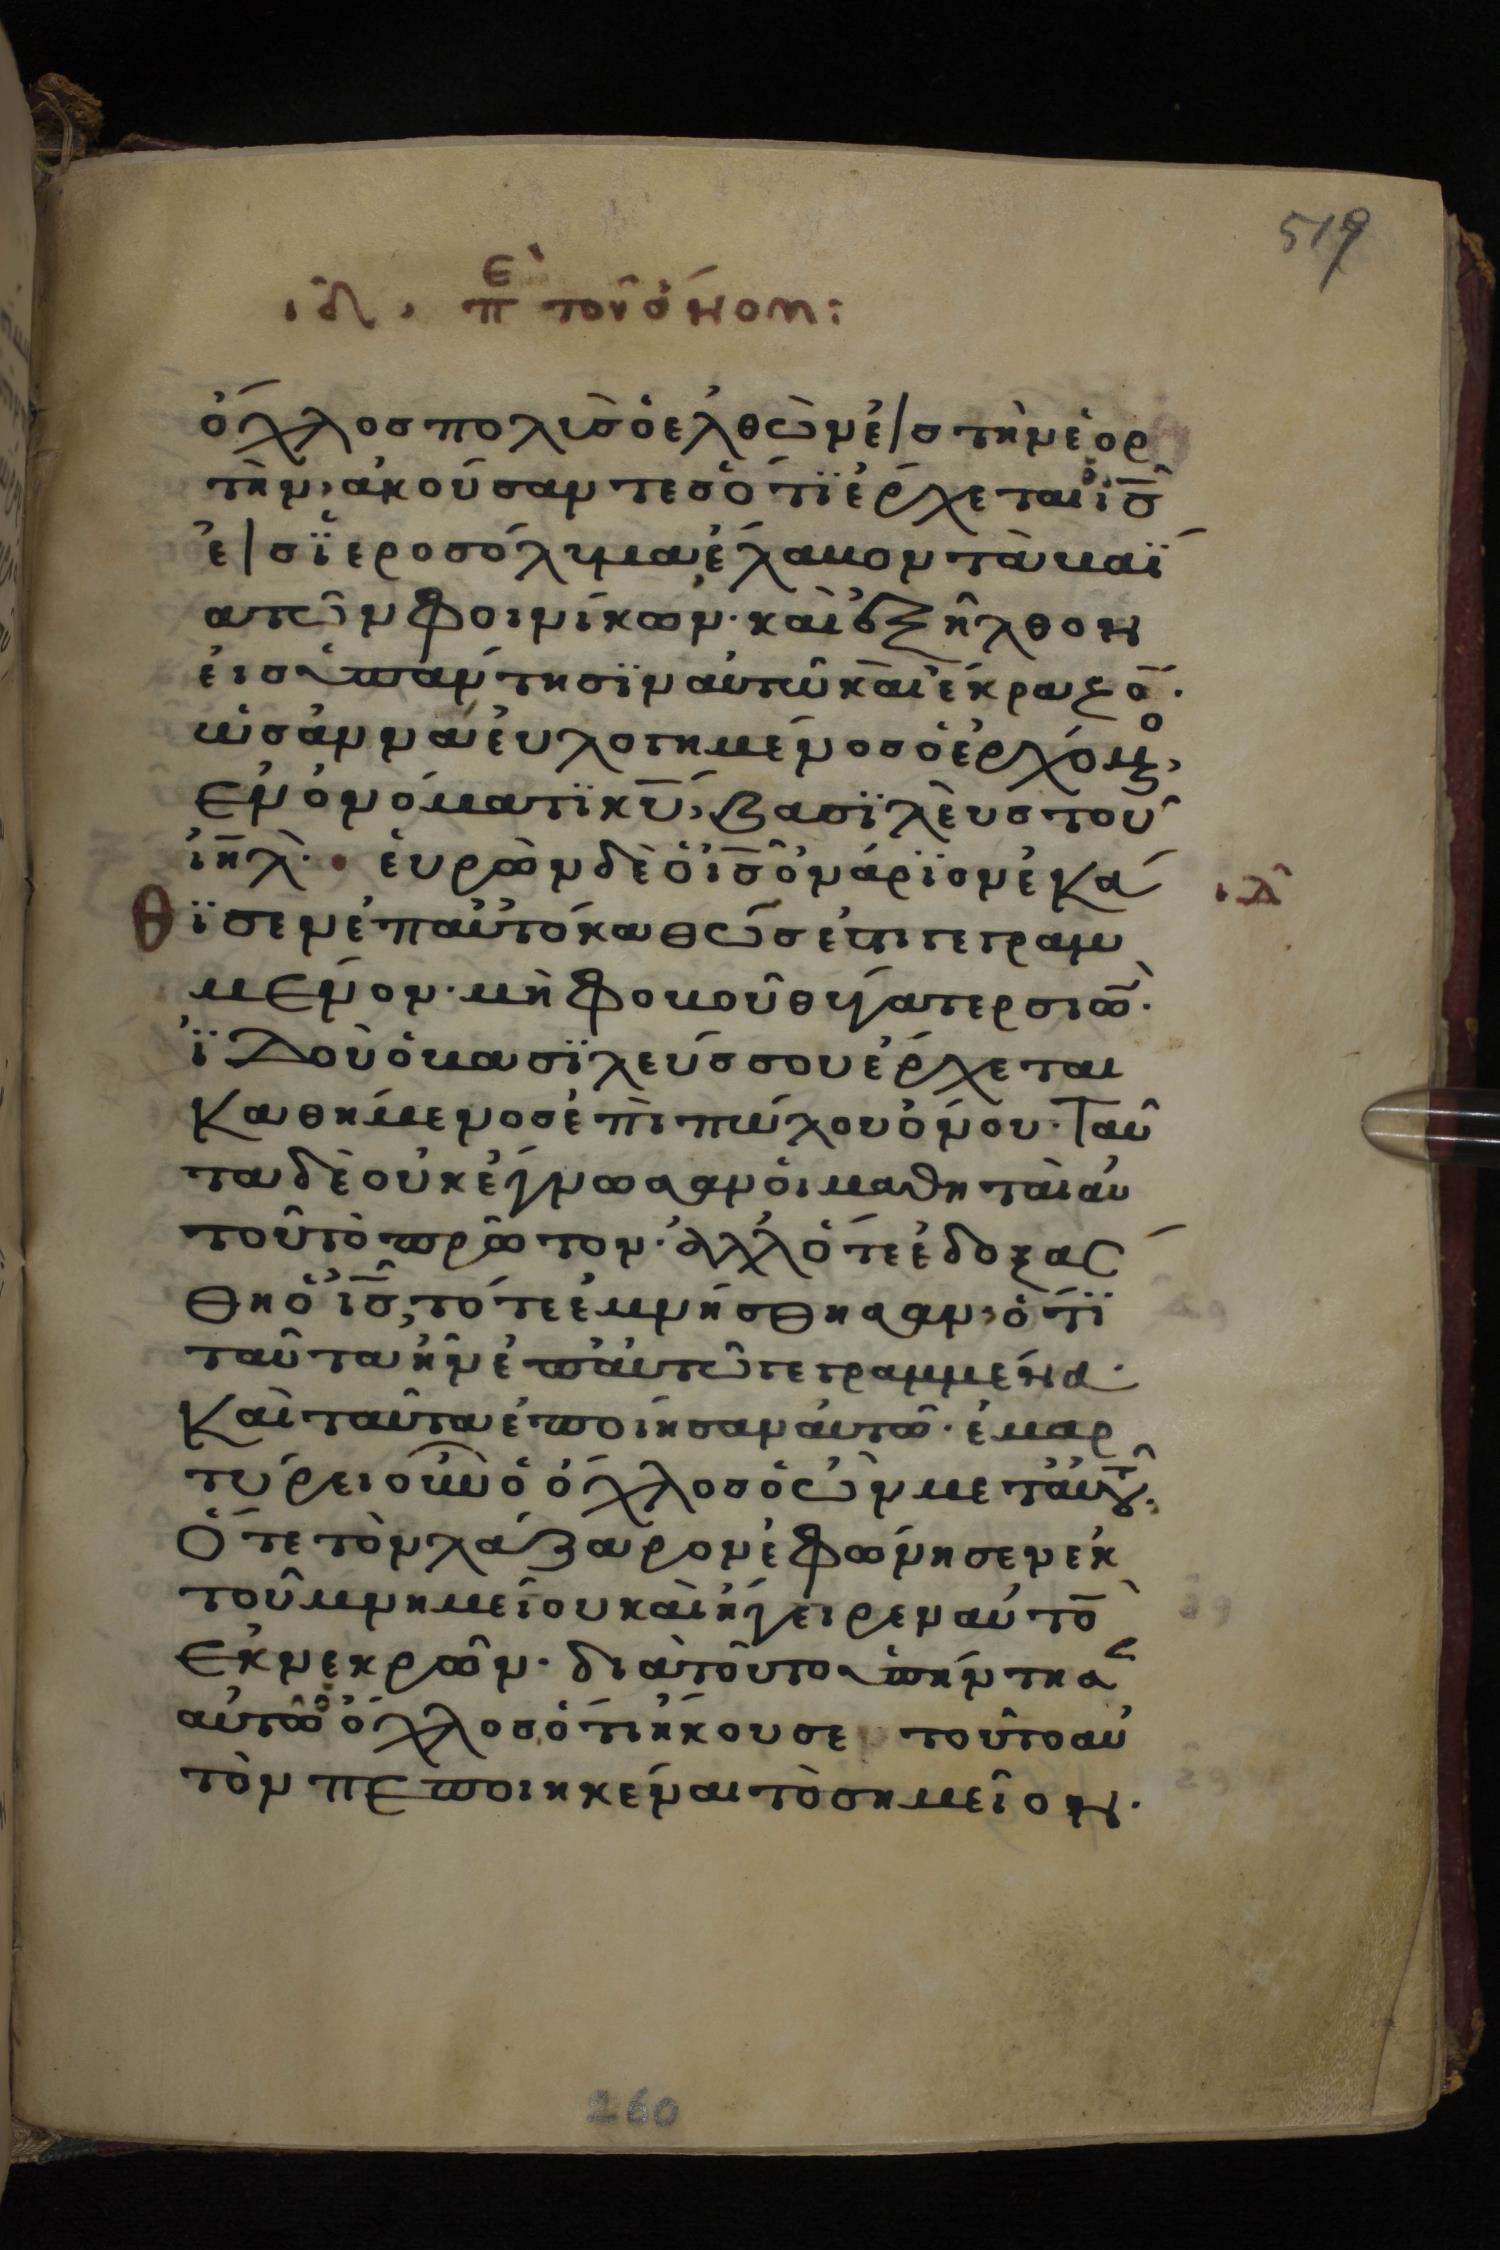 519
ιδ, πε τοῦ ὄνου:
ὄχλος πολὺς ὁ ἐλθὼν εἰς τὴν ἑορ
τὴν, ἀκούσαντες ὅτϊ ἔρχεται ὁ ις
εἰς ϊεροσόλυμα ἔλαβον τὰ βαΐ
α τῶν φοινίκων· καὶ ἐξῆλθον
εἰς ἀπάντησϊν αὐτῶ καὶ ἔκραζο̄·
ὡσάννα εὐλογημένος ὁ ἐρχόμο,
ἐν ὀνόματϊ κῡ, βασϊλεὺς τοῦ
ιηλ· εὑρὼν δὲ ὁ ις ὀνάρϊον ἐκά
θϊσεν ἐπ αὐτὸ καθώς ἐστι γεγραμ
ιδ
μένον· μὴ φοβοῦ θύγατερ σιω̄·
ϊδοὺ ὁ βασϊλεύς σου ἔρχεται
καθήμενος ἐπὶ πώλου ὄνου· Ταῦ
τα δὲ οὐκ ἔγνωσαν οἱ μαθηταὶ αὐ
τοῦ τὸ πρῶτον· ἀλλ ὅτε ἐδοξάσ
θη ὁ ις, τότε ἐμνήσθησαν, ὅτϊ
ταῦτα ἦν ἐπ αὐτῶ γεγραμμένα·
καὶ ταῦτα ἐποίησαν αὐτῶ· ἐμαρ
τύρει οὖν ὁ ὄχλος ὁ ὢν μετ αὐτοῦ·
Ὅτε τὸν λάζαρον ἐφώνησεν ἐκ
τοῦ μνημείου καὶ ἤγειρεν αὐτο̄
ἐκ νεκρῶν· διὰ τοῦτο ὑπήντησ
αὐτῶ ὁ ὄχλος ὅτι ἤκουσε τοῦτο αὐ
τὸν πεποιηκέναι τὸ σημεῖον·
260